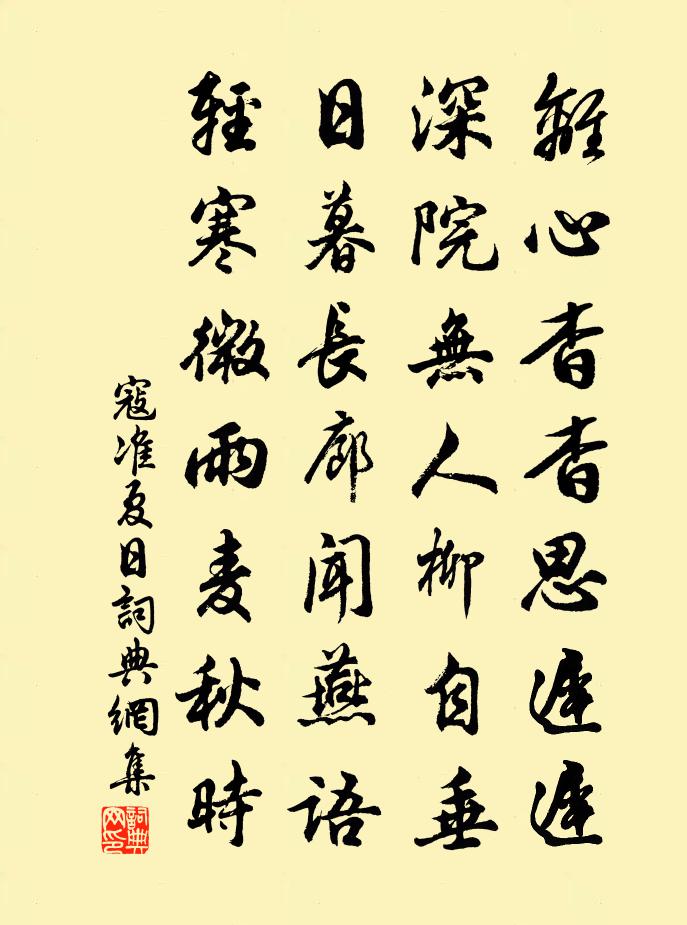 離心杳杳思遲遲
深院無人柳自垂
日暮長廊聞燕語
輕寒微雨麦秋時
寇准夏日詞典網集
詞典
网印